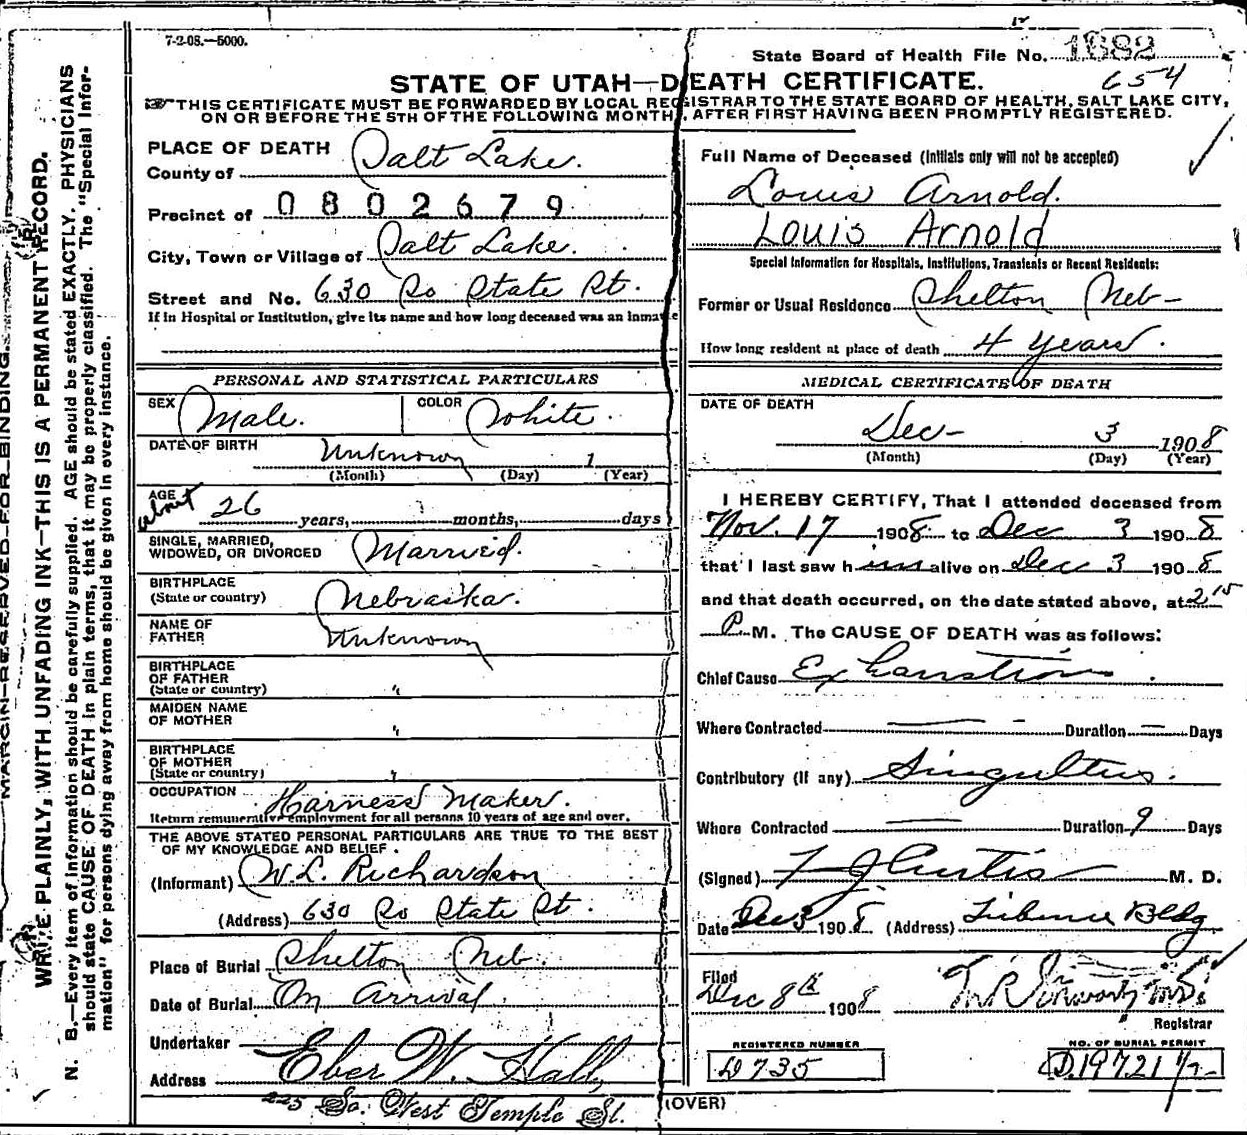 7-2-08.—5000.
State Board of Health File No. 1682
654
STATE OF UTAH—DEATH CERTIFICATE.
THIS CERTIFICATE MUST BE FORWARDED BY LOCAL REGISTRAR TO THE STATE BOARD OF HEALTH, SALT LAKE CITY,
ON OR BEFORE THE 5TH OF THE FOLLOWING MONTH, AFTER FIRST HAVING BEEN PROMPTLY REGISTERED.
MARGIN RESERVED FOR BINDING.
WRITE PLAINLY, WITH UNFADING INK—THIS IS A PERMANENT RECORD.
N. B.—Every item of information should be carefully supplied. AGE should be stated EXACTLY. PHYSICIANS
should state CAUSE OF DEATH in plain terms, that it may be properly classified. The "Special Infor-
mation" for persons dying away from home should be given in every instance.
PLACE OF DEATH
County of Salt Lake.
Precinct of 0802679
City, Town or Village of Salt Lake.
Street and No. 630 So State St.
If in Hospital or Institution, give its name and how long deceased was an inmate
PERSONAL AND STATISTICAL PARTICULARS
SEX Male. COLOR White.
DATE OF BIRTH Unknown 1
(Month) (Day) (Year)
AGE
about 26 years, months, days
SINGLE, MARRIED,
WIDOWED, OR DIVORCED Married.
BIRTHPLACE
(State or country) Nebraska.
NAME OF
FATHER Unknown
BIRTHPLACE
OF FATHER
(State or country) "
MAIDEN NAME
OF MOTHER "
BIRTHPLACE
OF MOTHER
(State or country) "
OCCUPATION Harness Maker.
Return remunerative employment for all persons 10 years of age and over.
THE ABOVE STATED PERSONAL PARTICULARS ARE TRUE TO THE BEST
OF MY KNOWLEDGE AND BELIEF.
(Informant) W. L. Richardson
(Address) 630 So State St.
Place of Burial Shelton Neb.
Date of Burial On Arrival.
Undertaker Eber W. Hall,
Address 225 So. West Temple St.
Full Name of Deceased (Initials only will not be accepted)
Louis Arnold.
Louis Arnold
Special Information for Hospitals, Institutions, Transients or Recent Residents:
Former or Usual Residence Shelton Neb-
How long resident at place of death 4 years.
MEDICAL CERTIFICATE OF DEATH
DATE OF DEATH
Dec- 3 1908
(Month) (Day) (Year)
I HEREBY CERTIFY, That I attended deceased from
Nov. 17 1908 to Dec 3 1908
that I last saw him alive on Dec 3 1908
and that death occurred, on the date stated above, at 2 15
P. M. The CAUSE OF DEATH was as follows:
Chief Cause Exhaustion.
Where Contracted — Duration — Days
Contributory (if any) Singultus.
Where Contracted — Duration 9 Days
(Signed) F J Curtis M. D.
Date Dec 3 1908 (Address) Tribune Bldg
Filed
Dec 8th 1908
Registrar
REGISTERED NUMBER
D735
NO. OF BURIAL PERMIT
D.19721 1/2
(OVER)